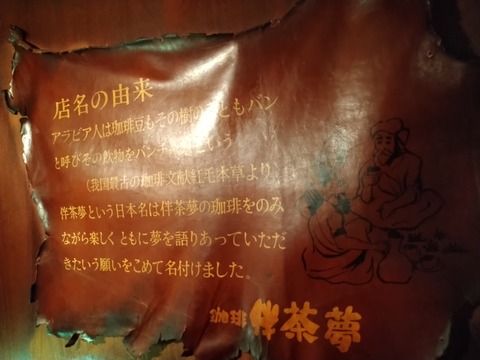 店名の由来
アラビア人は珈琲豆もその樹の ともバン
と呼びその飲物をバン という
(我国最古の珈琲文献紅毛本草より
伴茶夢という日本名は伴茶夢の珈琲をのみ
ながら楽しく ともに夢を語りあっていただ
きたいう願いをこめて名付けました。
珈琲 伴茶夢